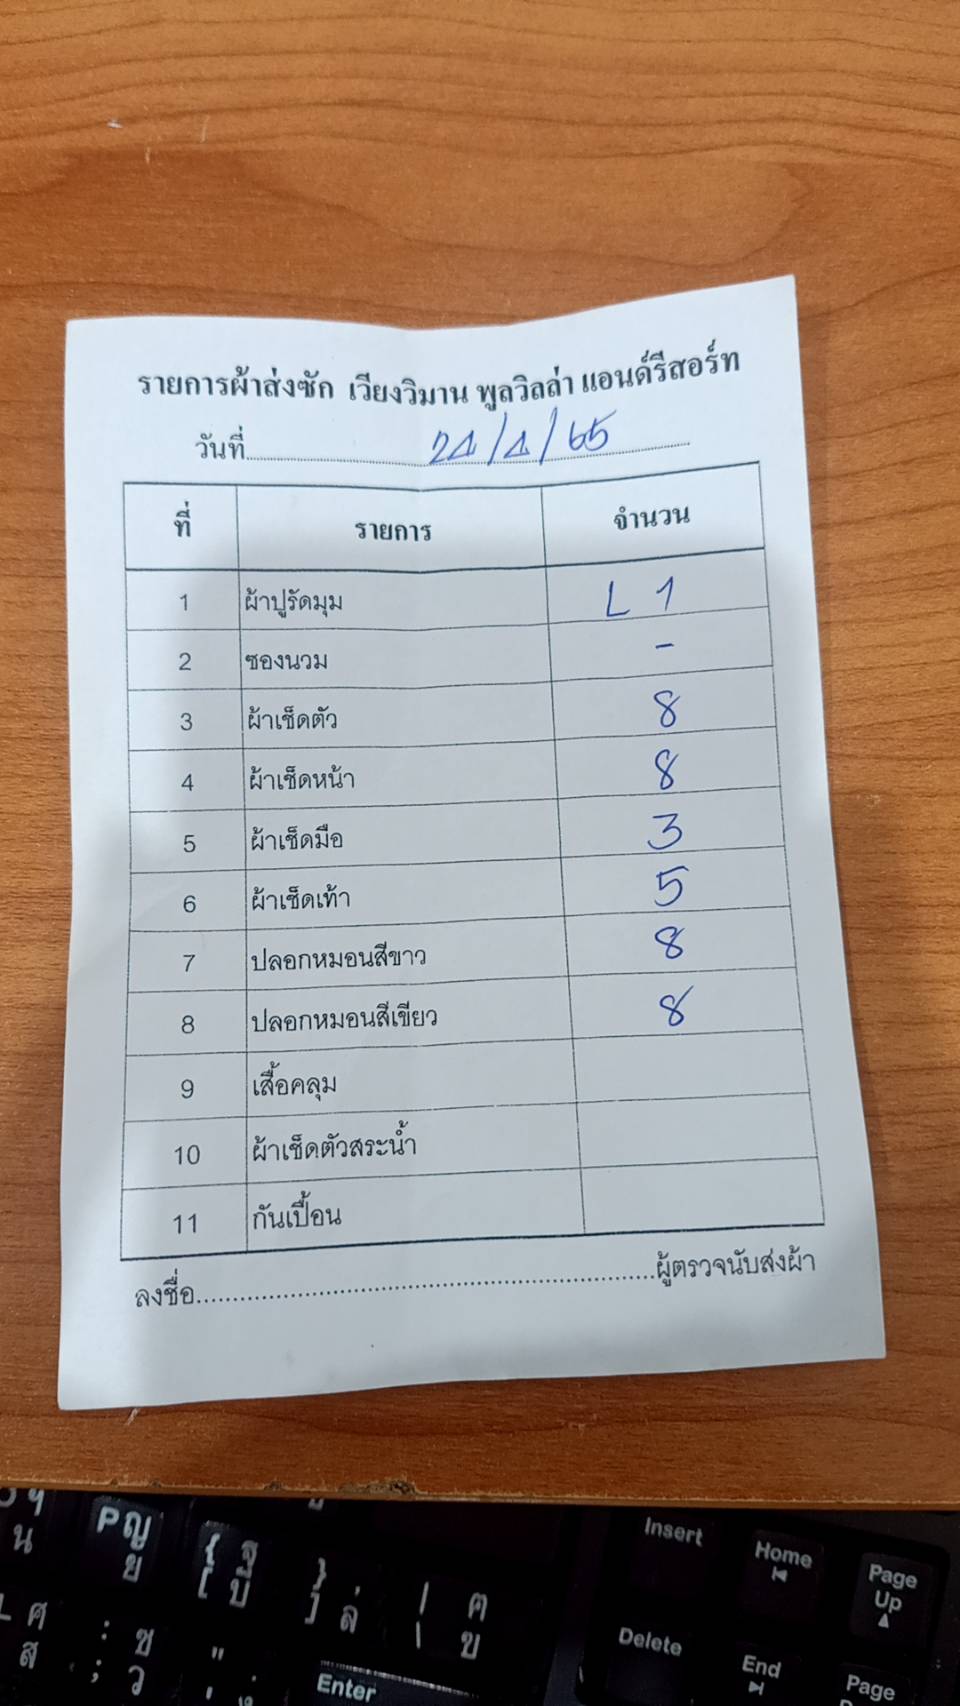 รายการผ้าส่งซัก เวียงวิมาน พูลวิลล่า แอนด์รีสอร์ท
วันที่ 24/4/65
ที่ รายการ จำนวน
1 ผ้าปูรัดมุม L 1
2 ซองนวม -
3 ผ้าเช็ดตัว 8
4 ผ้าเช็ดหน้า 8
5 ผ้าเช็ดมือ 3
6 ผ้าเช็ดเท้า 5
7 ปลอกหมอนสีขาว 8
8 ปลอกหมอนสีเขียว 8
9 เสื้อคลุม
10 ผ้าเช็ดตัวสระน้ำ
11 กันเปื้อน
ลงชื่อ............ผู้ตรวจนับส่งผ้า
น P ญ ย { ฐ [ บ } ] ล | ฅ \ ฃ Insert Home Page Up
ศ ส : ซ ; ว " ' Enter Delete End Page